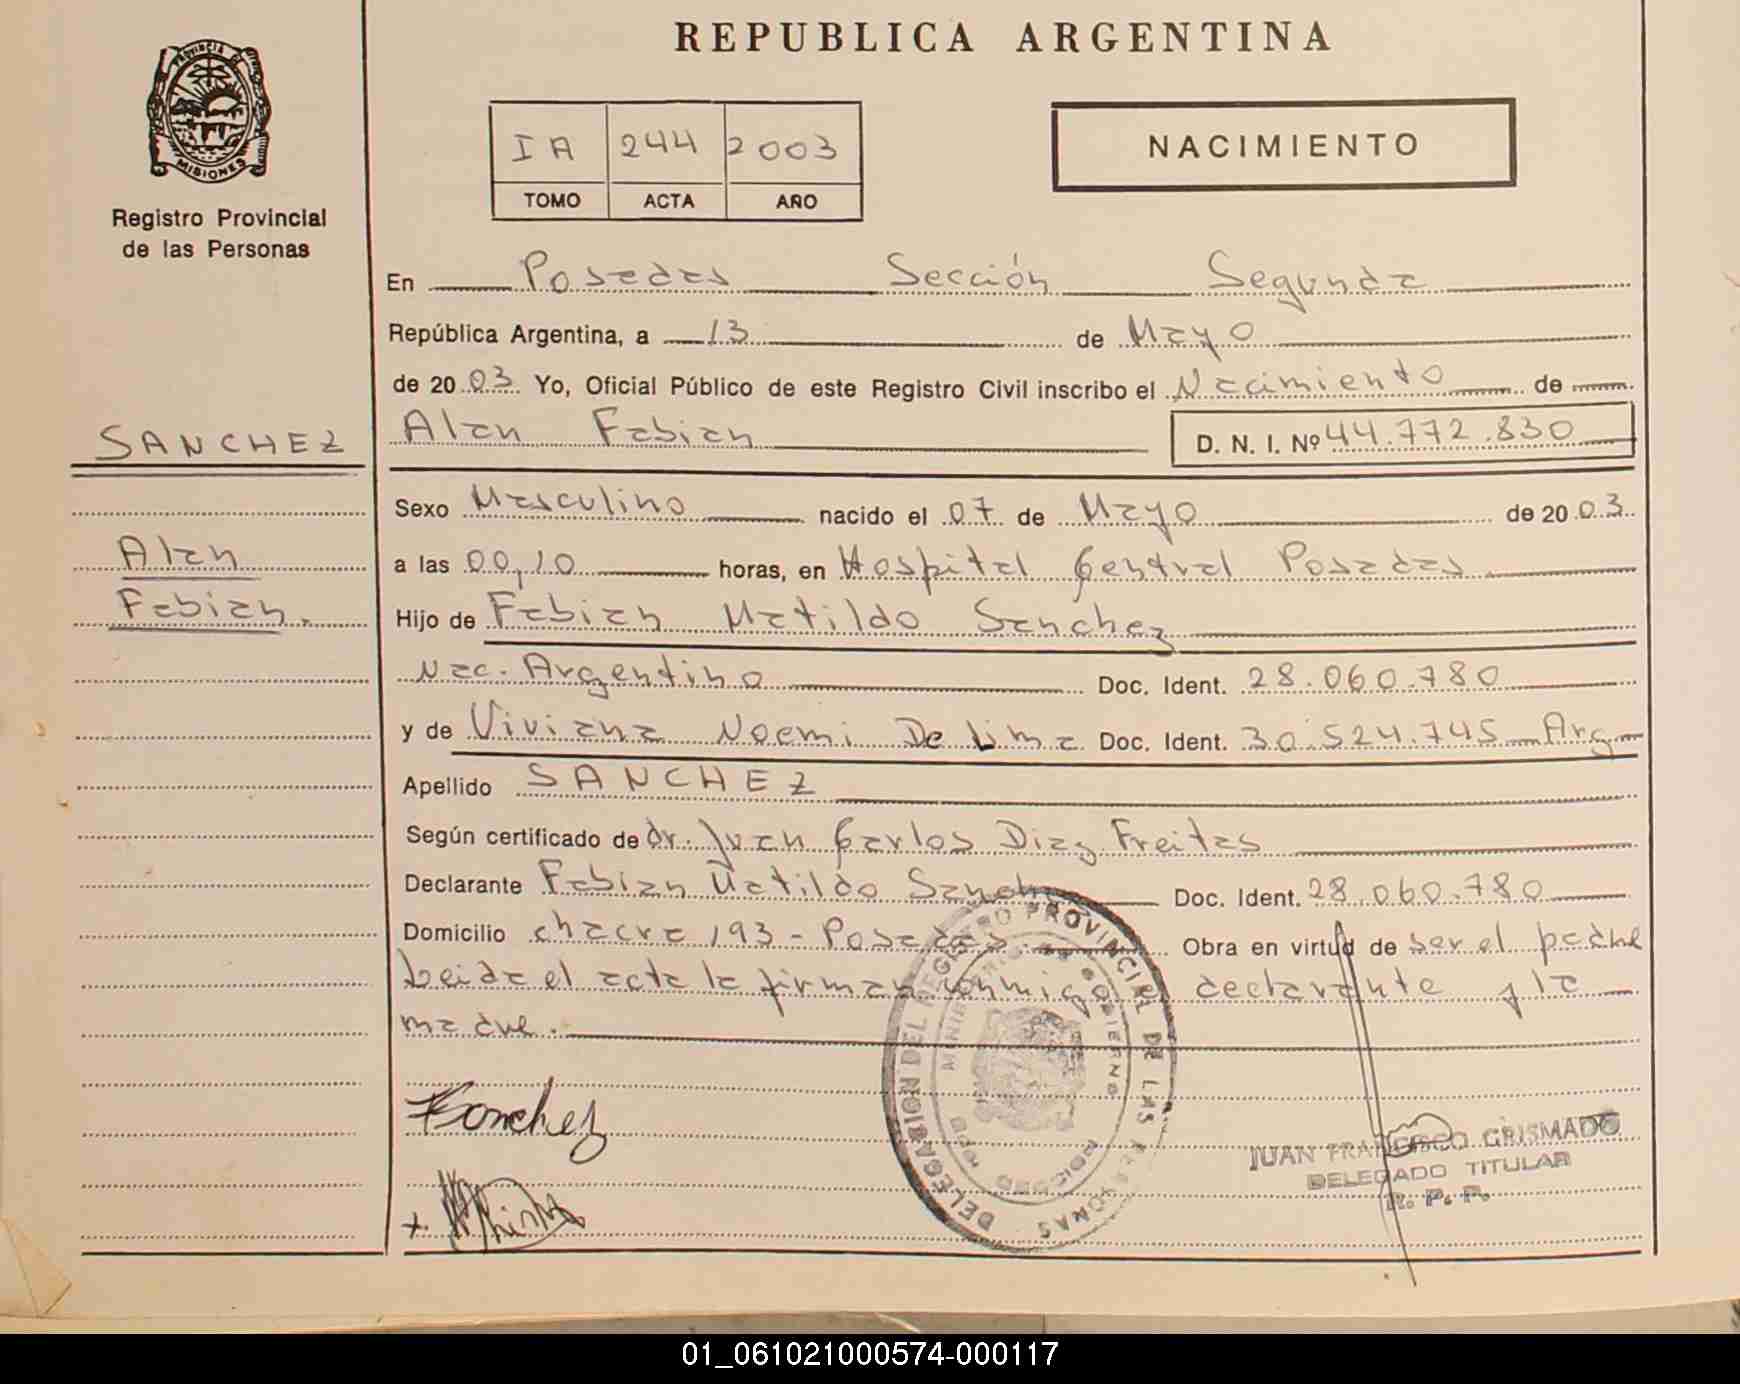 REPUBLICA ARGENTINA
PROVINCIA DE
MISIONES
Registro Provincial
de las Personas
IA 244 2003
TOMO ACTA AÑO
NACIMIENTO
En Posadas Sección Segunda
República Argentina, a 13 de Mayo
de 2003 Yo, Oficial Público de este Registro Civil inscribo el Nacimiento de
SANCHEZ
Alan Fabian D. N. I. Nº 44.772.830
Sexo Masculino nacido el 07 de Mayo de 2003
Alan
a las 00,10 horas, en Hospital Central Posadas
Fabian.
Hijo de Fabian Matildo Sanchez
Nac. Argentino Doc. Ident. 28.060.780
y de Viviana Noemi De Lima Doc. Ident. 30.524.745 Arg
Apellido SANCHEZ
Según certificado de dr. Juan Carlos Diaz Freitas
Declarante Fabian Matildo Sanchez Doc. Ident. 28.060.780
Domicilio chacra 193 - Posadas. Obra en virtud de ser el padre
Leida el acta la firman conmigo el declarante y la
madre.
DELEGACION DEL REGISTRO PROVINCIAL DE LAS PERSONAS
MINISTERIO DE GOBIERNO
Fsanchez
JUAN FRANCISCO GRISMADO
DELEGADO TITULAR
R. P. P.
01_061021000574-000117